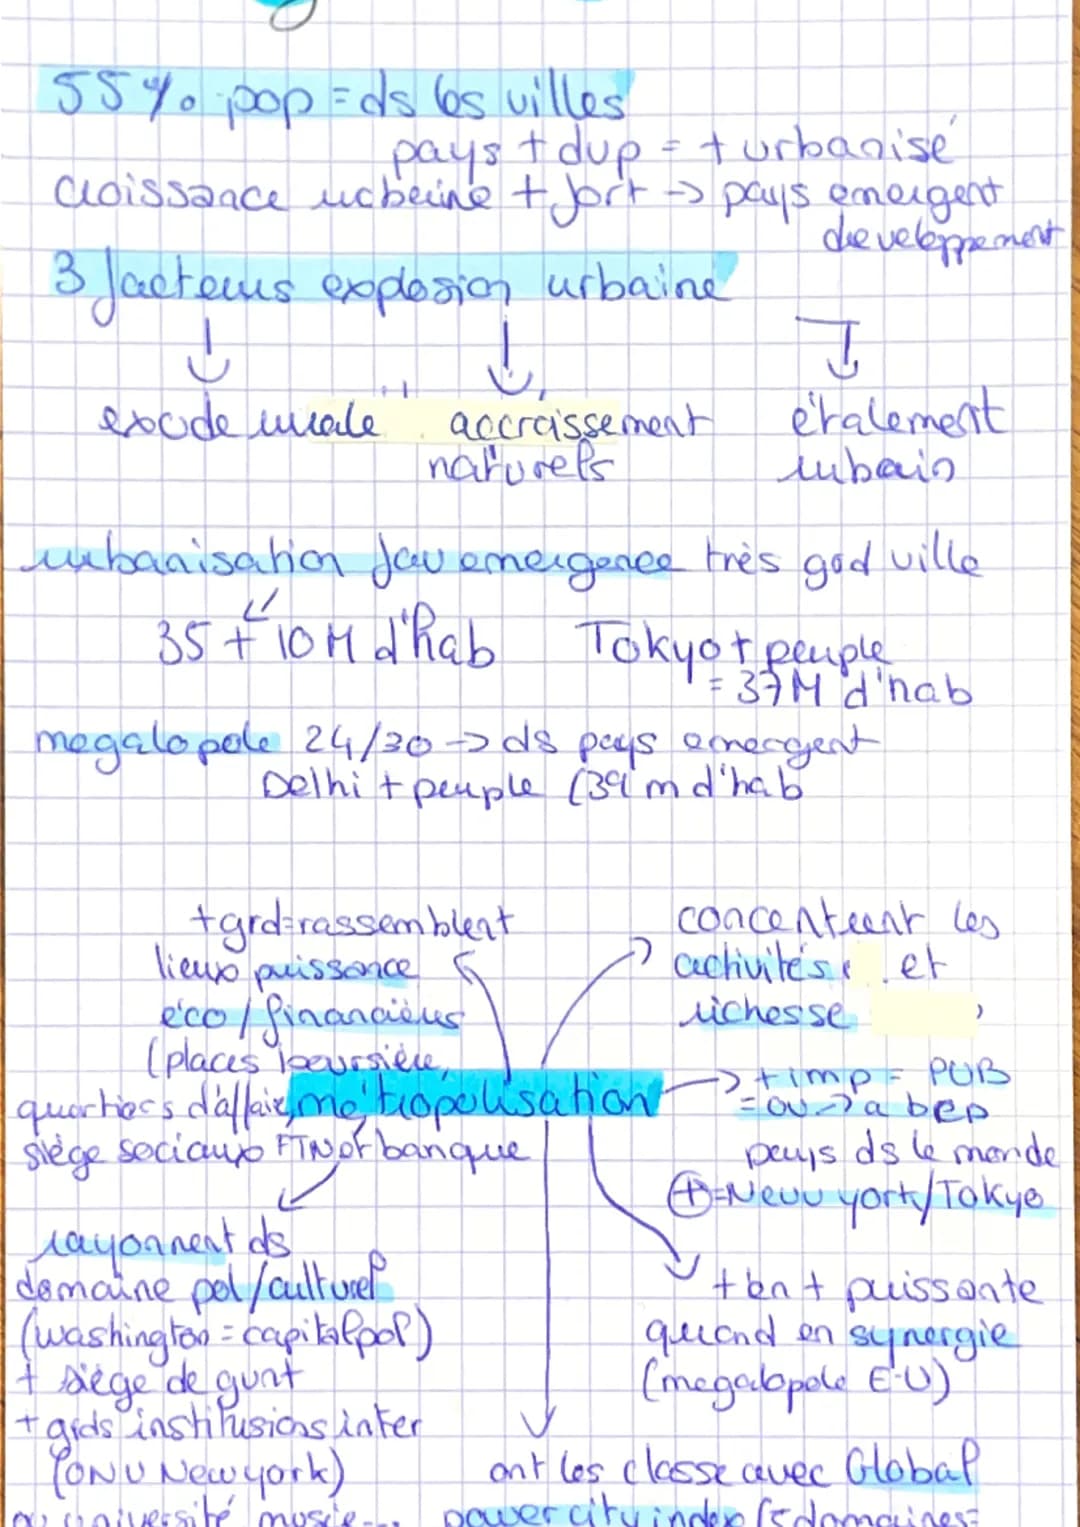 55% pop = ds les villes
pays + dvp = + urbanisé
croissance urbaine + fort → pays emergent
developpement
3 facteurs explosion urbaine
exode rurale accroissement étalement
naturels urbain
urbanisation fav emergence très grd ville
35 + 10M d'hab Tokyo + peuple
= 37M d'hab
megalopole 24/30 → ds pays emergent
Delhi + peuple (39 m d'hab
+ grd = rassemblent
lieux puissance
éco / financières
(places boursière,
quartiers d'affaire,
siège sociaux FTN et banque
concentrent les
activités et
richesse
métropolisation
→ + imp = PUB
= ou → a bep
pays ds le monde
⊕ = New york/Tokyo
rayonnent ds
domaine pol/culturel
(washington = capital pol)
+ siège de gvnt
+ grds institusions inter
(ONU New york)
ou université musée...
+ en + puissante
quand en synergie
(megalopole E-U)
ont les classe avec Global
power city index (5 domaines =